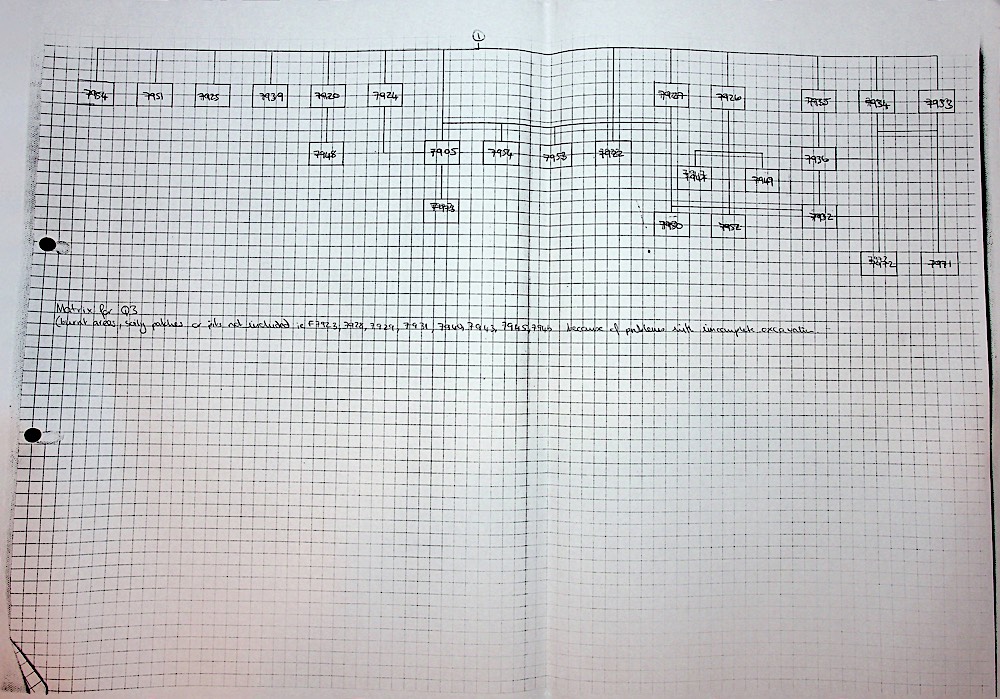 1
7954 7951 7925 7939 7920 7924 7927 7926 7935 7934 7933
7948 7905 7954 7953 7922 7936
7949
7973 7932
7950 7952
7971
Matrix for Q3
(burnt areas, soily patches or pits not included ie F7923, 7928, 7929, 7931, 7940, 7943, 7945, 7946 because of problems with incomplete excavation